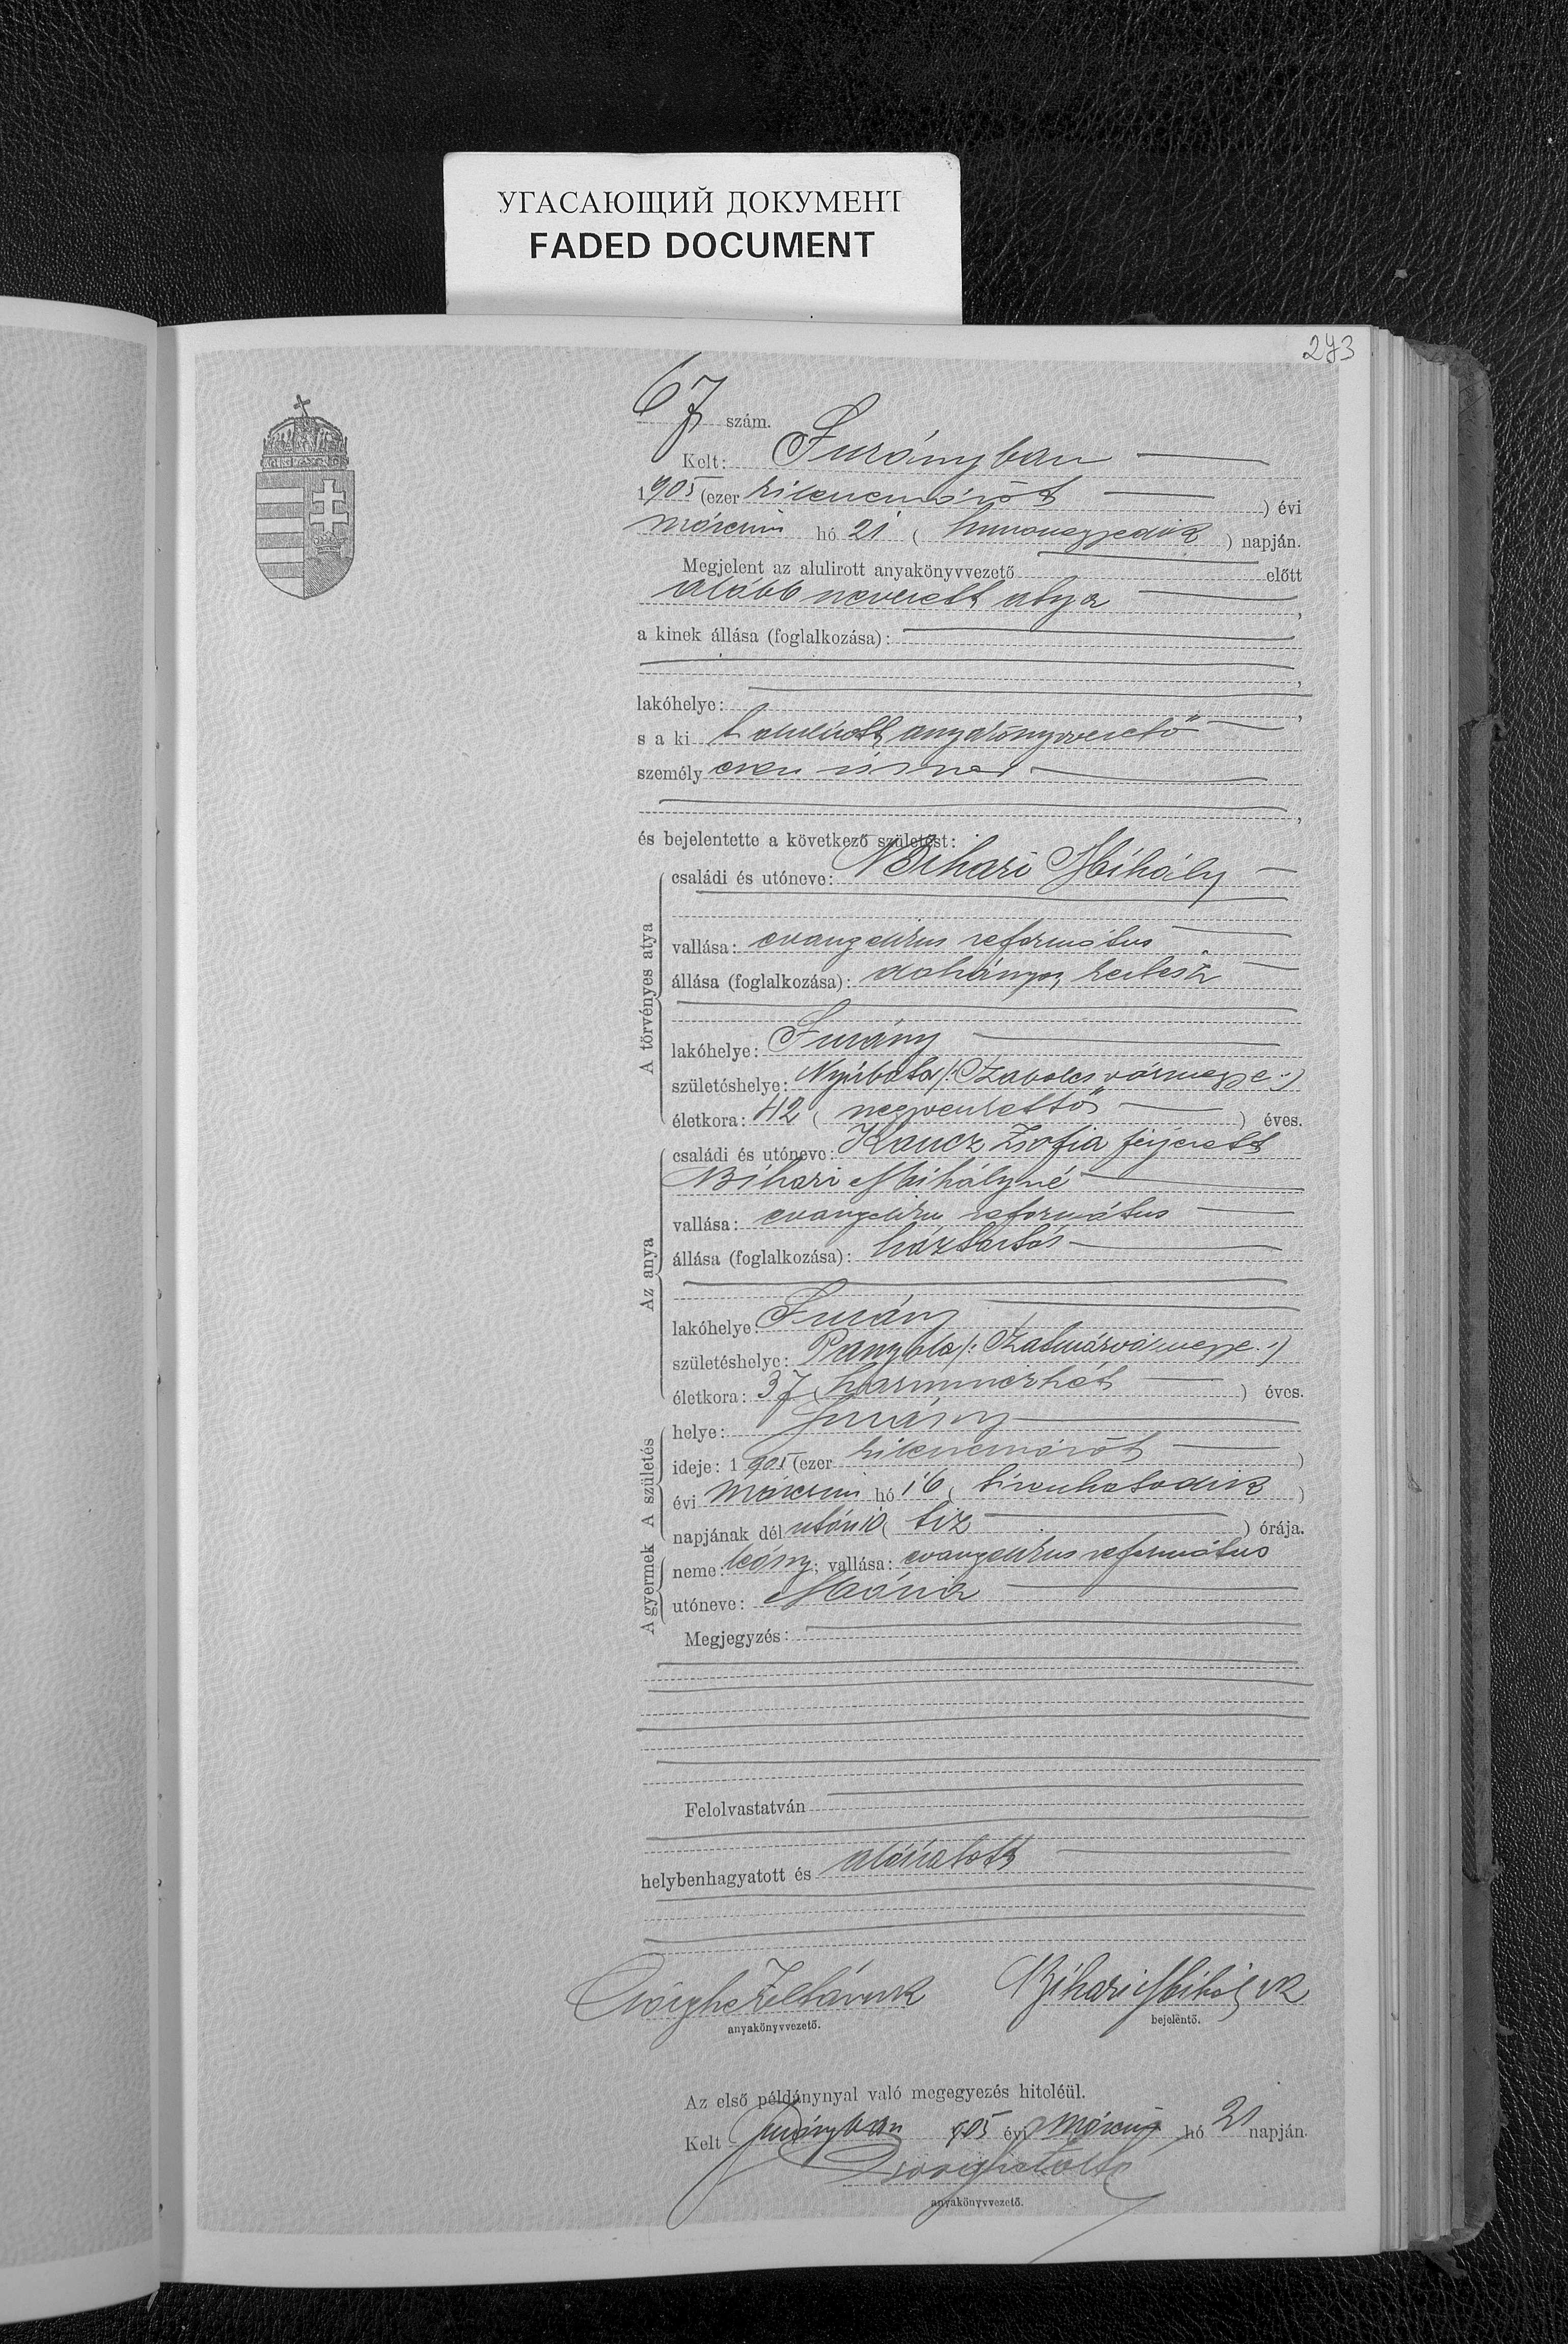 УГАСАЮЩИЙ ДОКУМЕНТ
FADED DOCUMENT
273
67 szám.
Kelt: Iványban
1905 (ezer kilencszázöt ) évi
márczius hó 21 ( huszonegyedik ) napján.
Megjelent az alulirott anyakönyvvezető előtt
alább nevezett atya ,
a kinek állása (foglalkozása):
,
lakóhelye: ,
s a ki t alulirott anyakönyvvezető
személy esen ismer
,
és bejelentette a következő születést:
A törvényes atya
családi és utóneve: Bihari Mihály
vallása: evangelikus református
állása (foglalkozása): dohányos kertész
lakóhelye:
születéshelye: Nyírbátor /: Szabolcs vármegye :/
életkora: 42 ( negyvenkettő ) éves.
Az anya
családi és utóneve: Zsofia férjezett
Bihari Mihályné
vallása: evangelikus református
állása (foglalkozása): háztartás
lakóhelye:
születéshelye: Panyola /: Szatmárvármegye :/
életkora: 37 ( harminczhét ) éves.
A születés
helye:
ideje: 1905 (ezer kilencszázöt )
évi márczius hó 16 ( tizenhatodik )
napjának dél után 10 ( tiz ) órája.
A gyermek
neme: leány; vallása: evangelikus református
utóneve: Mária
Megjegyzés:
Felolvastatván
helybenhagyatott és aláiratott
Zoltán vk Bihari Mihály vk
anyakönyvvezető. bejelentő.
Az első példánynyal való megegyezés hiteléül.
Kelt 905 évi márczius hó 21 napján.
anyakönyvvezető.